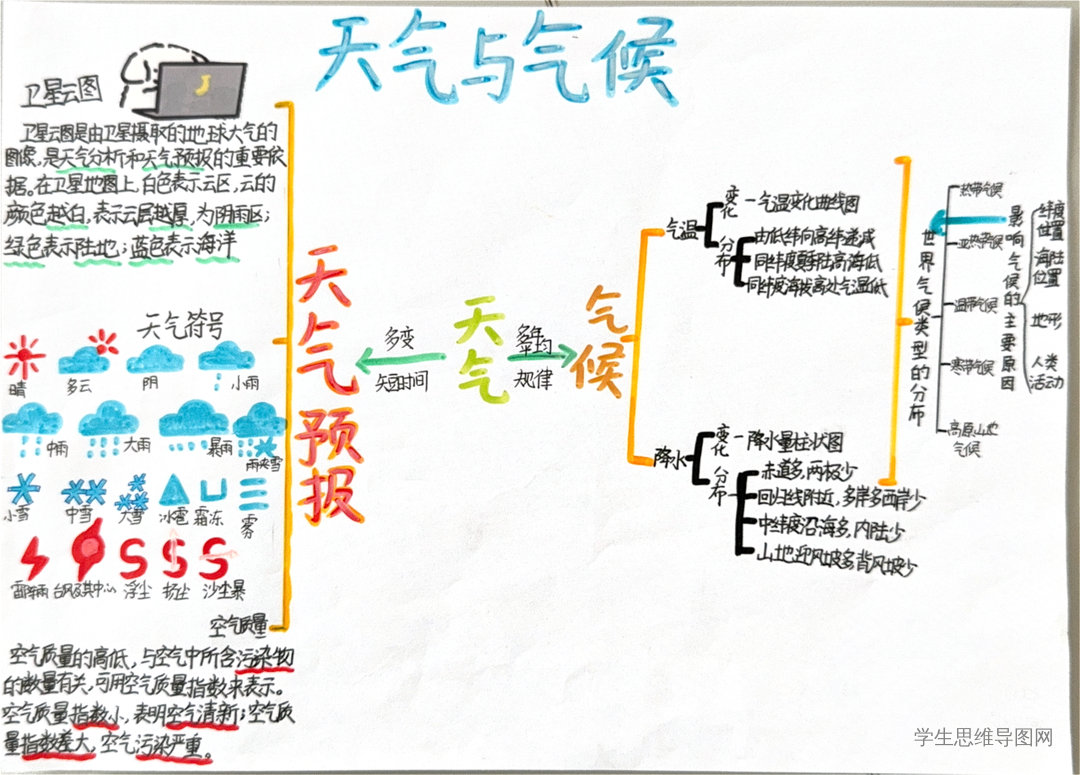 天气与气候
卫星云图
卫星云图是由卫星摄取的地球大气的
图像,是天气分析和天气预报的重要依
据。在卫星地图上,白色表示云区,云的
颜色越白,表示云层越厚,为阴雨区;
绿色表示陆地;蓝色表示海洋
天气符号
晴 多云 阴 小雨
中雨 大雨 暴雨 雨夹雪
小雪 中雪 大雪 冰雹 霜冻 雾
雷阵雨 台风及其中心 浮尘 扬尘 沙尘暴
空气质量
空气质量的高低,与空气中所含污染物
的数量有关,可用空气质量指数来表示。
空气质量指数小,表明空气清新;空气质
量指数差大,空气污染严重。
天气预报
多变
短时间
天气
多年
平均
规律
气候
气温
变化
气温变化曲线图
分布
由低纬向高纬递减
同纬度夏季陆高海低
同纬度海拔高处气温低
降水
变化
降水量柱状图
分布
赤道多,两极少
回归线附近,多岸多西岸少
中纬度沿海多,内陆少
山地迎风坡多背风坡少
世界气候类型的分布
热带气候
亚热带气候
温带气候
寒带气候
高原山地
气候
影响气候的主要原因
纬度
位置
海陆
位置
地形
人类
活动
学生思维导图网